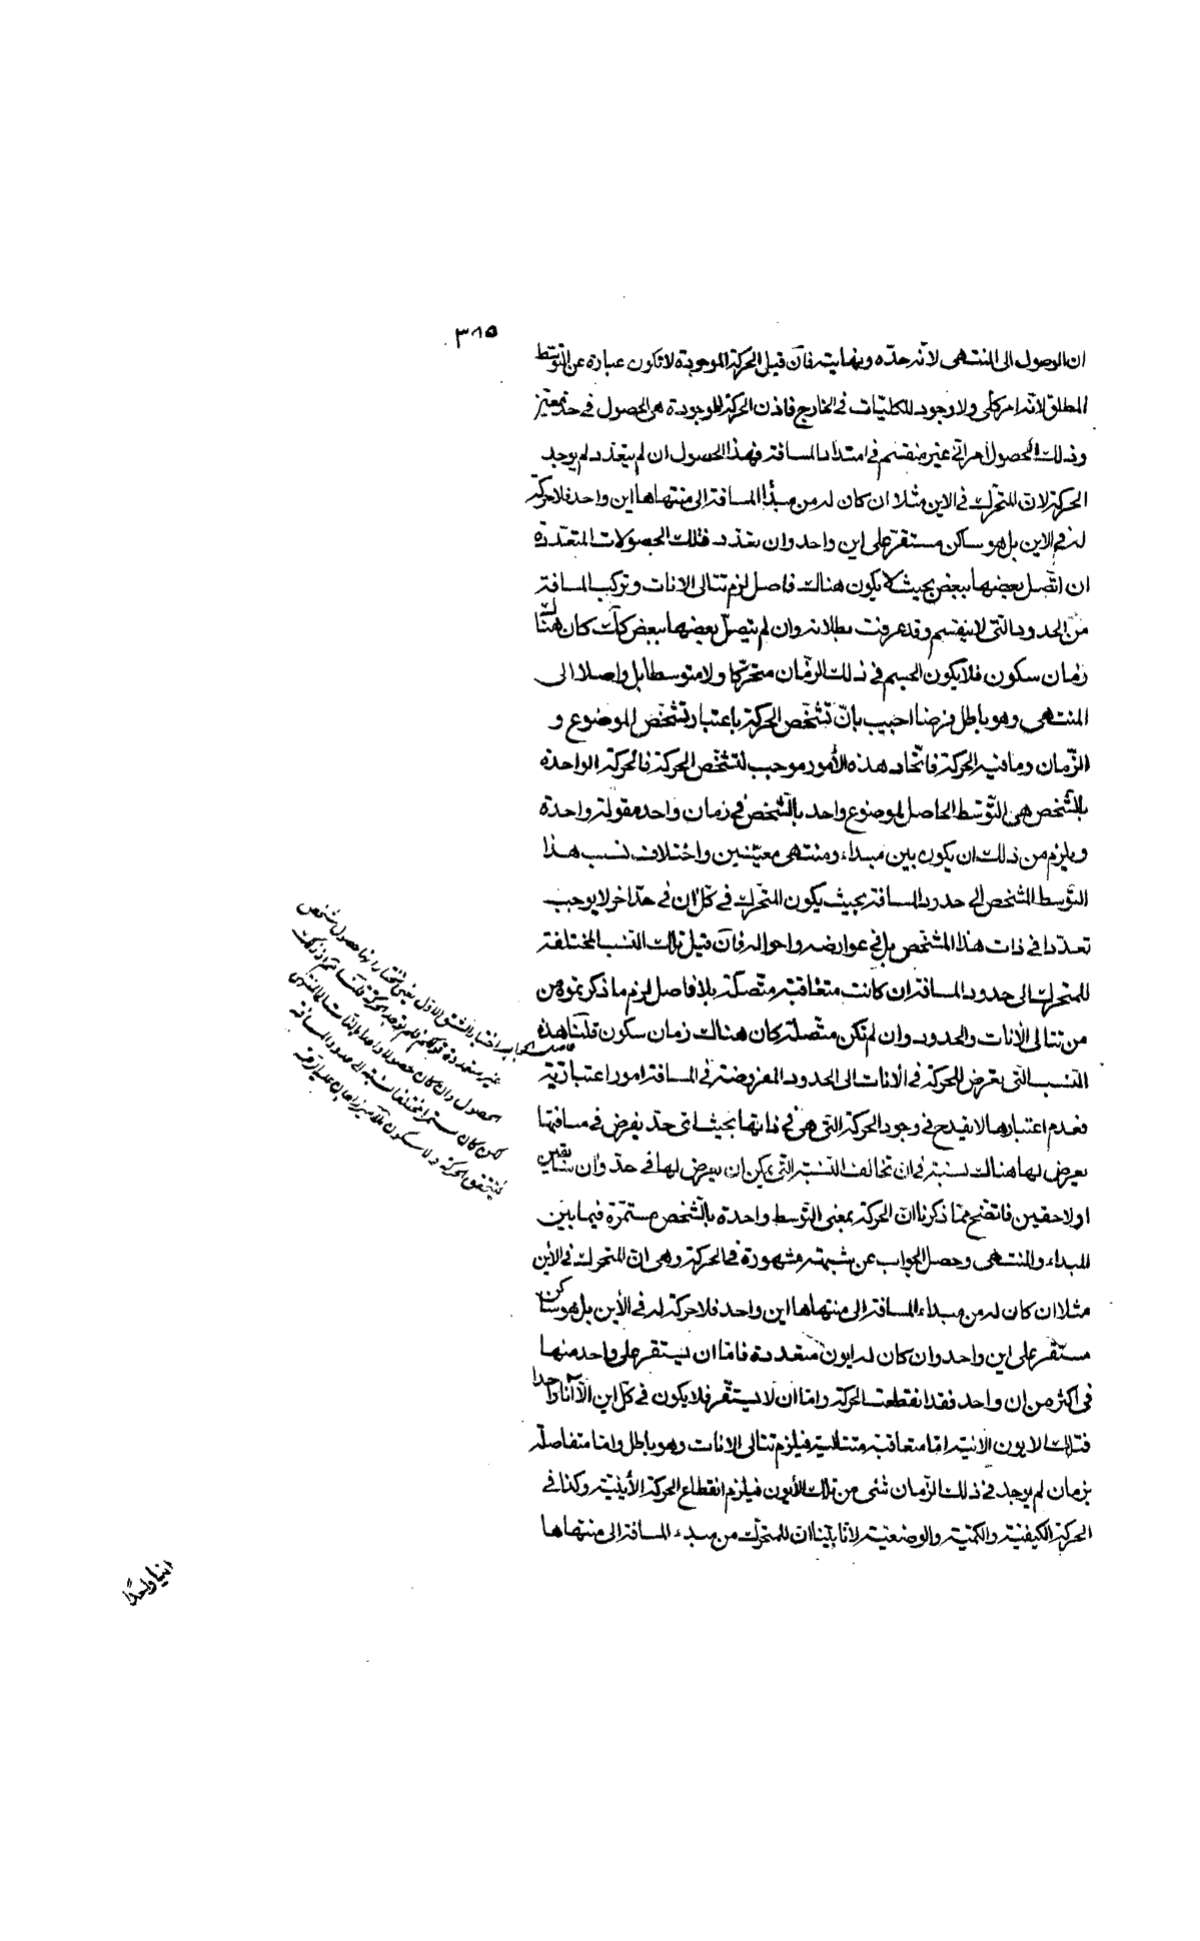 ٣٨٥
ان الوصول الى المنتهى لانه حدّه ونهايته فان قيل الحركة الموجودة لا تكون عبارة عن التوسّط
المطلق لانه امر كلّى ولا وجود للكليّات فى الخارج فاذن الحركة الموجودة هى الحصول فى حدّ معيّن
وذلك الحصول امر آنى غير منقسم فى امتداد المسافة فهذا الحصول ان لم يتعدد لم يوجد
الحركة لان المتحرّك فى الاين مثلا ان كان له من مبدأ المسافة الى منتهاها اين واحد فلا حركة
له فى الاين بل هو ساكن مستقر على اين واحد وان تعدّد فتلك الحصولات المتعدّدة
ان اتّصل بعضها ببعض بحيث لا يكون هناك فاصل لزم تتالى الانات وتركب المسافة
من الحدود التى لا ينقسم وقد عرفت بطلانه وان لم يتصل بعضها ببعض كذلك كان هناك
زمان سكون فلا يكون الجسم فى ذلك الزّمان متحركا ولا متوسطا بل واصلا الى
المنتهى وهو باطل فرضا اجيب بانّ تشخّص الحركة باعتبار تشخّص الموضوع و
الزّمان وما فيه الحركة فاتّحاد هذه الأمور موجب لتشخّص الحركة فالحركة الواحدة
بالشّخص هى التّوسّط الحاصل لموضوع واحد بالشّخص فى زمان واحد مقولة واحدة
ويلزم من ذلك ان يكون بين مبداء ومنتهى معيّنين واختلاف نسب هذا
التّوسط الشخص الى حدود المسافة بحيث يكون المتحرّك فى كلّ ان فى حدّ اخر لا يوجب
تعدّدا فى ذات هذا المشخّص بل فى عوارضه واحواله فان قيل تلك النسب المختلفة
للمتحرك الى حدود المسافة ان كانت متعاقبة متّصلة بلا فاصل لزم ما ذكرتموه من
من تتالى الانات والحدود وان لم تكن متّصلة كان هناك زمان سكون قلنا هذه
النسب التى يعرض للحركة فى الانات الى الحدود المفروضة فى المسافة امور اعتباريّة
فعدم اعتبارها لا يقدح فى وجود الحركة التى هى فى ذاتها بحيث اىّ حدّ يفرض فى مسافتها
يعرض لها هناك نسبة فى ان تخالف النّسبة التى يمكن ان يعرض لها فى حدّ وان سابقين
او لاحقين فاتضح ممّا ذكرنا انّ الحركة بمعنى التّوسط واحدة بالشّخص مستمّرة فيما بين
المبداء والمنتهى وحصل الجواب عن شبهة مشهورة فى الحركة وهى انّ المتحرك فى الأين
مثلا ان كان له من مبداء المسافة الى منتهاها اين واحد فلا حركة له فى الأين بل هو ساكن
مستقّر على اين واحد وان كان له ايون متعدّدة فامّا ان يستقر على واحد منها
فى اكثر من ان واحد فقد انقطعت الحركة وامّا ان لا يستقّر فلا يكون فى كلّ اين الّا آنا واحدا
فتلك الايون الانية امّا متعاقبة متتالية فيلزم تتالى الانات وهو باطل وامّا متفاصلة
بزمان لم يوجد فى ذلك الزّمان شئى من تلك الأيون فيلزم انقطاع الحركة الأينيّة وكذا فى
الحركة الكيفيّة والكمّية والوضعيّة لانّا بيّنا انّ للمتحرّك من مبدء المسافة الى منتهاها
حاصل الجواب اختيار الشق الاول يعنى نختار انها حصول شخص
غير متعددة قولكم فلم توجد الحركة قلنا
الحصول وان كان حصولا واحدا
لكن كان مستمرا مختلفا نسبة الى حدود المسافة
فيتحقق الحركة ولا سكون
اينا واحدًا